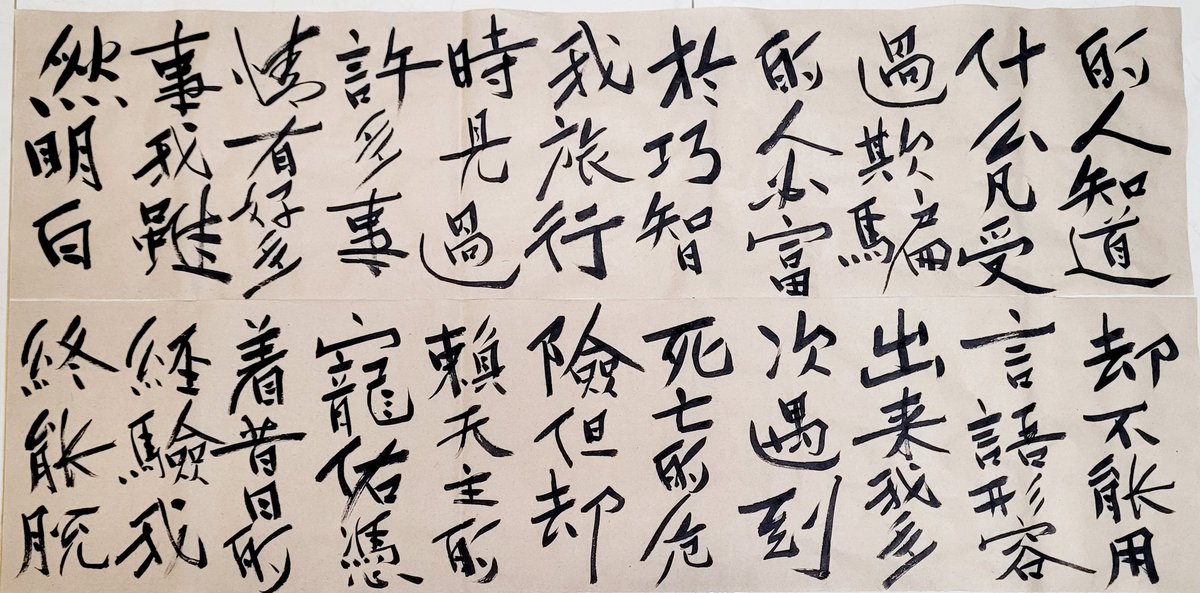 的人知道
什么凡受
過欺騙
的人必富
於巧智
我旅行
時見過
許多事
情有好多
事我雖
然明白
却不能用
言語形容
出来我多
次遇到
死亡的危
險但却
賴天主的
寵佑憑
着昔日的
經驗我
終能脫